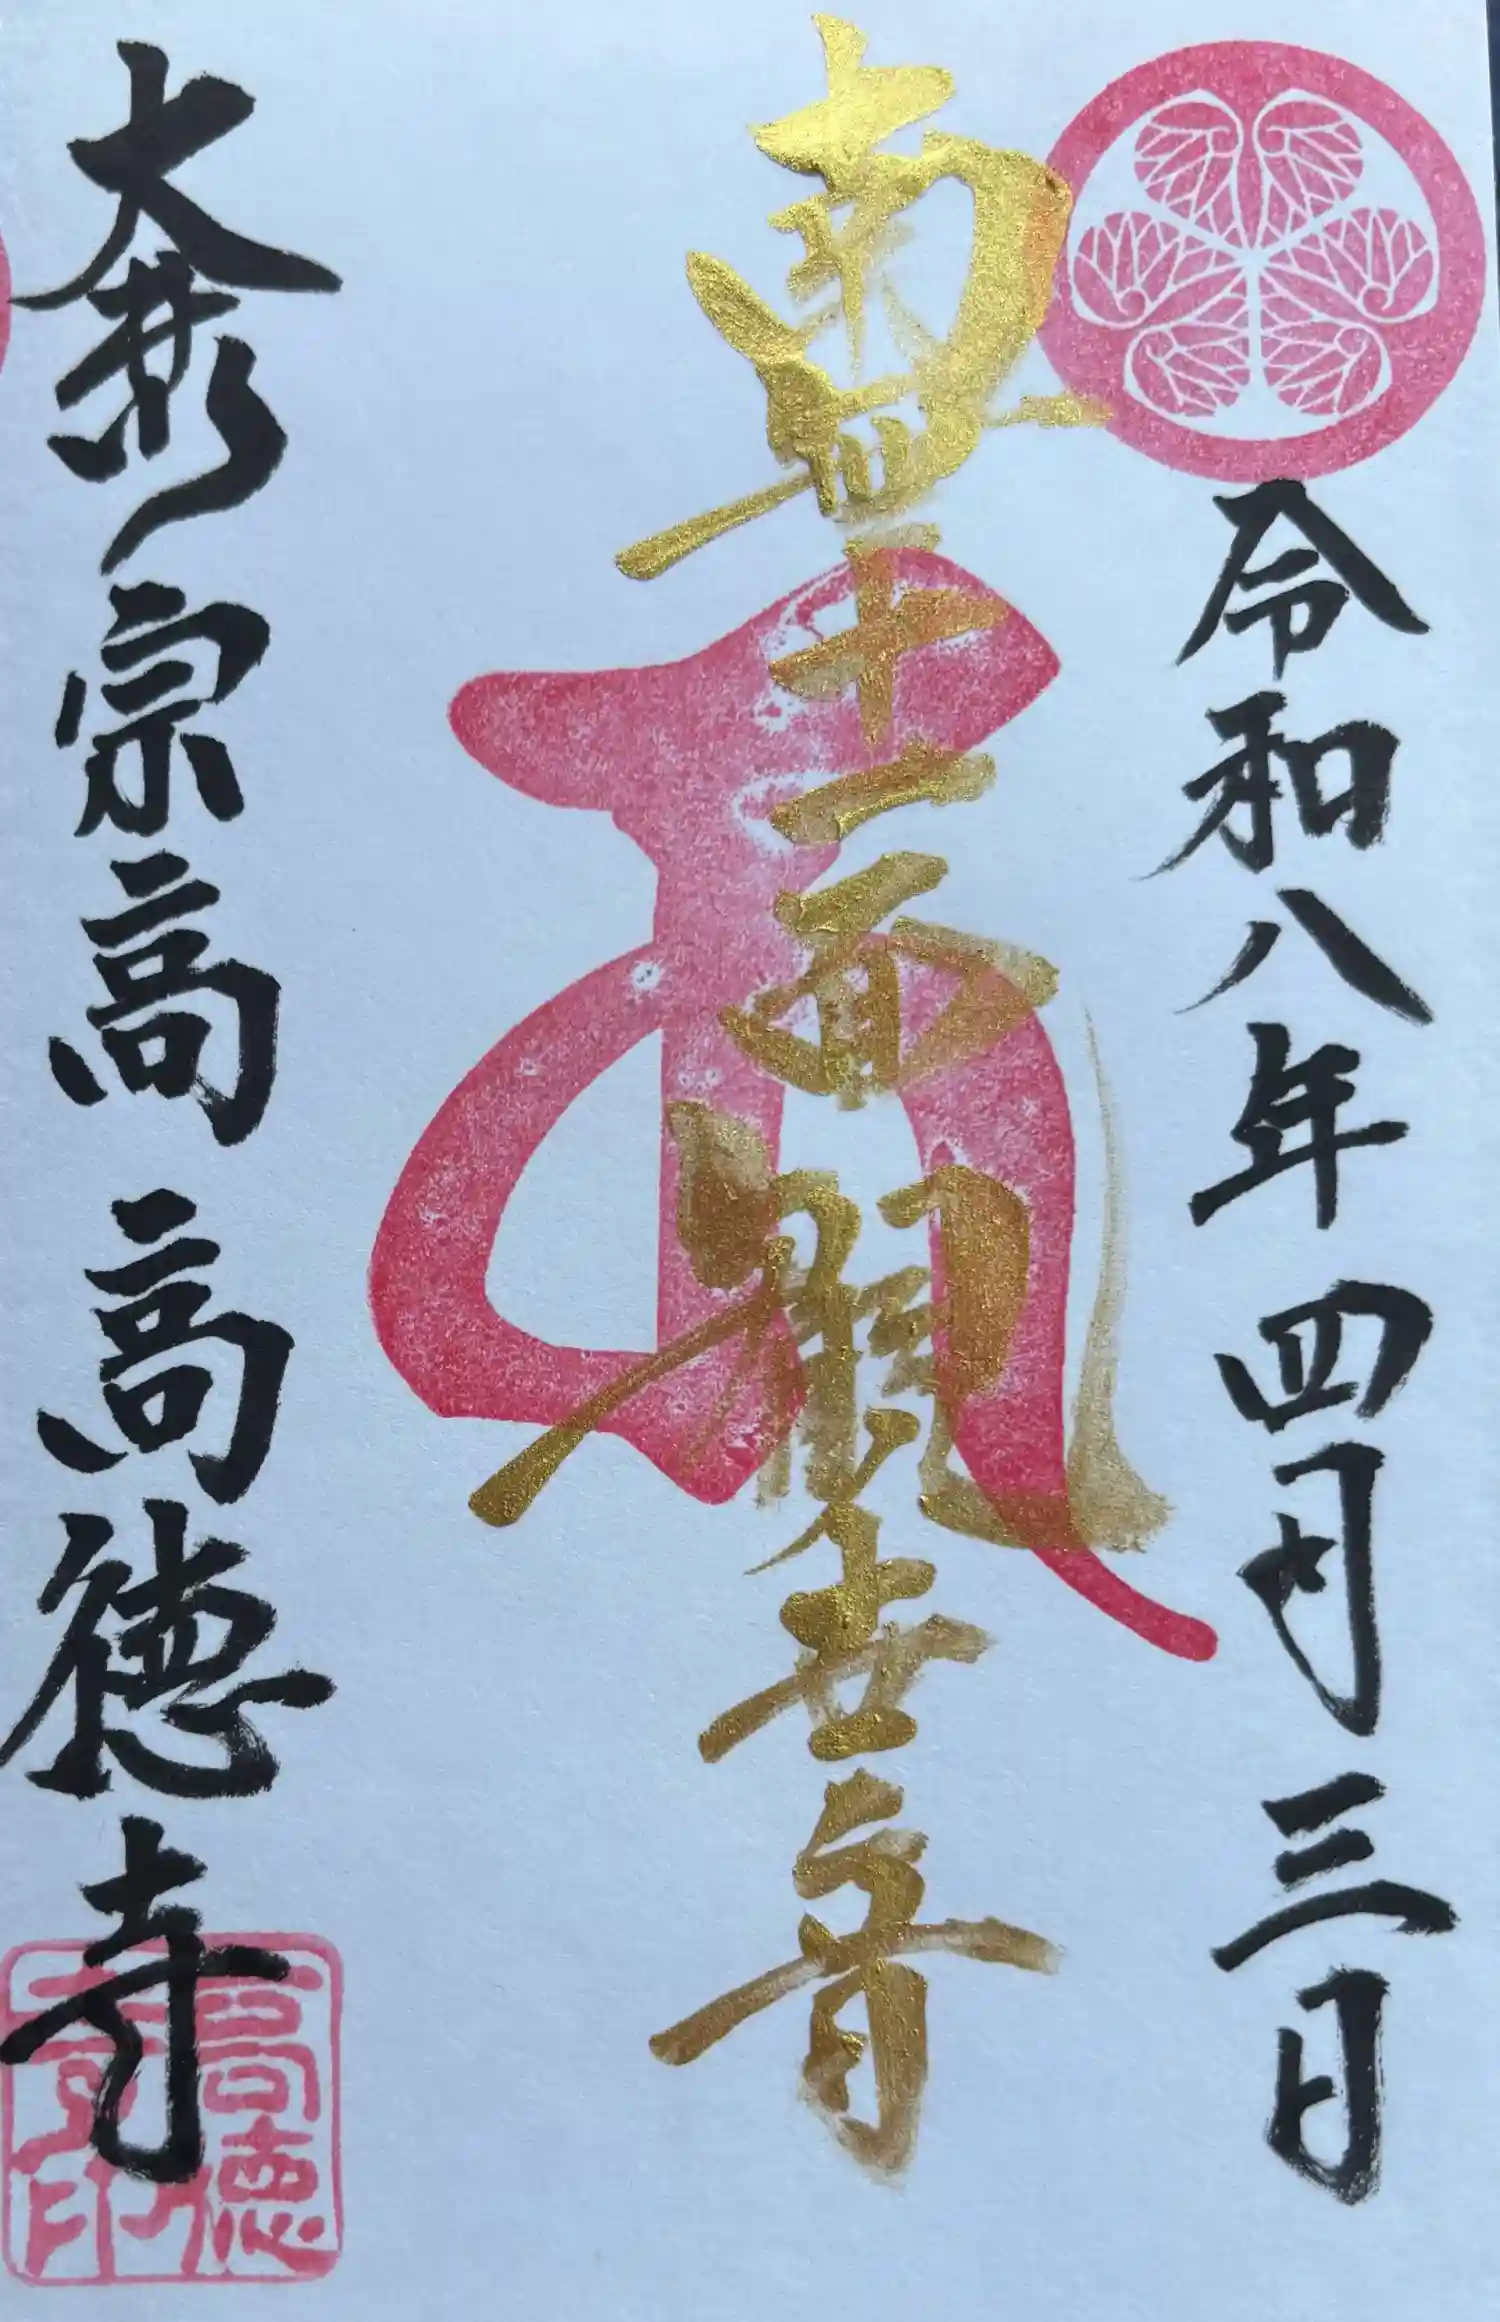 令和八年四月三日
南無十一面観世音
大井川宗高 高徳寺
高徳寺印